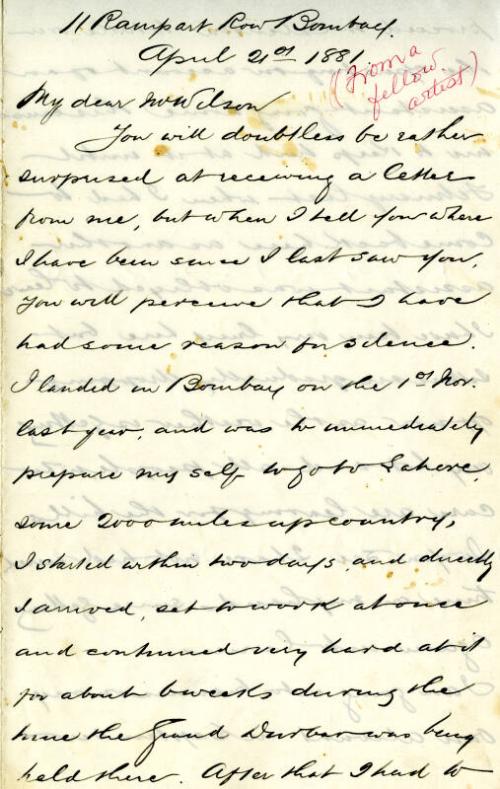 11 Rampart Row Bombay.
April 21st 1881
(From a
fellow
artist)
My dear Mr Wilson
You will doubtless be rather
surprised at receiving a letter
from me, but when I tell you where
I have been since I last saw you,
you will perceive that I have
had some reason for silence.
I landed in Bombay on the 1st Nov.
last year, and was to immediately
prepare my self to go to Lahore,
some 2000 miles up country,
I started within two days, and directly
I arrived, set to work at once
and continued very hard at it
for about 6 weeks during the
time the Grand Durbar was being
held there. After that I had to